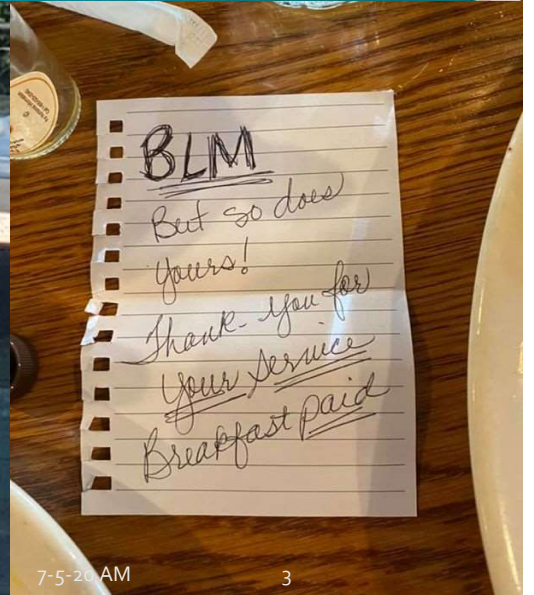 BLM
But so does
yours!
Thank-you for
Your Service
Breakfast paid
7-5-20 AM
3